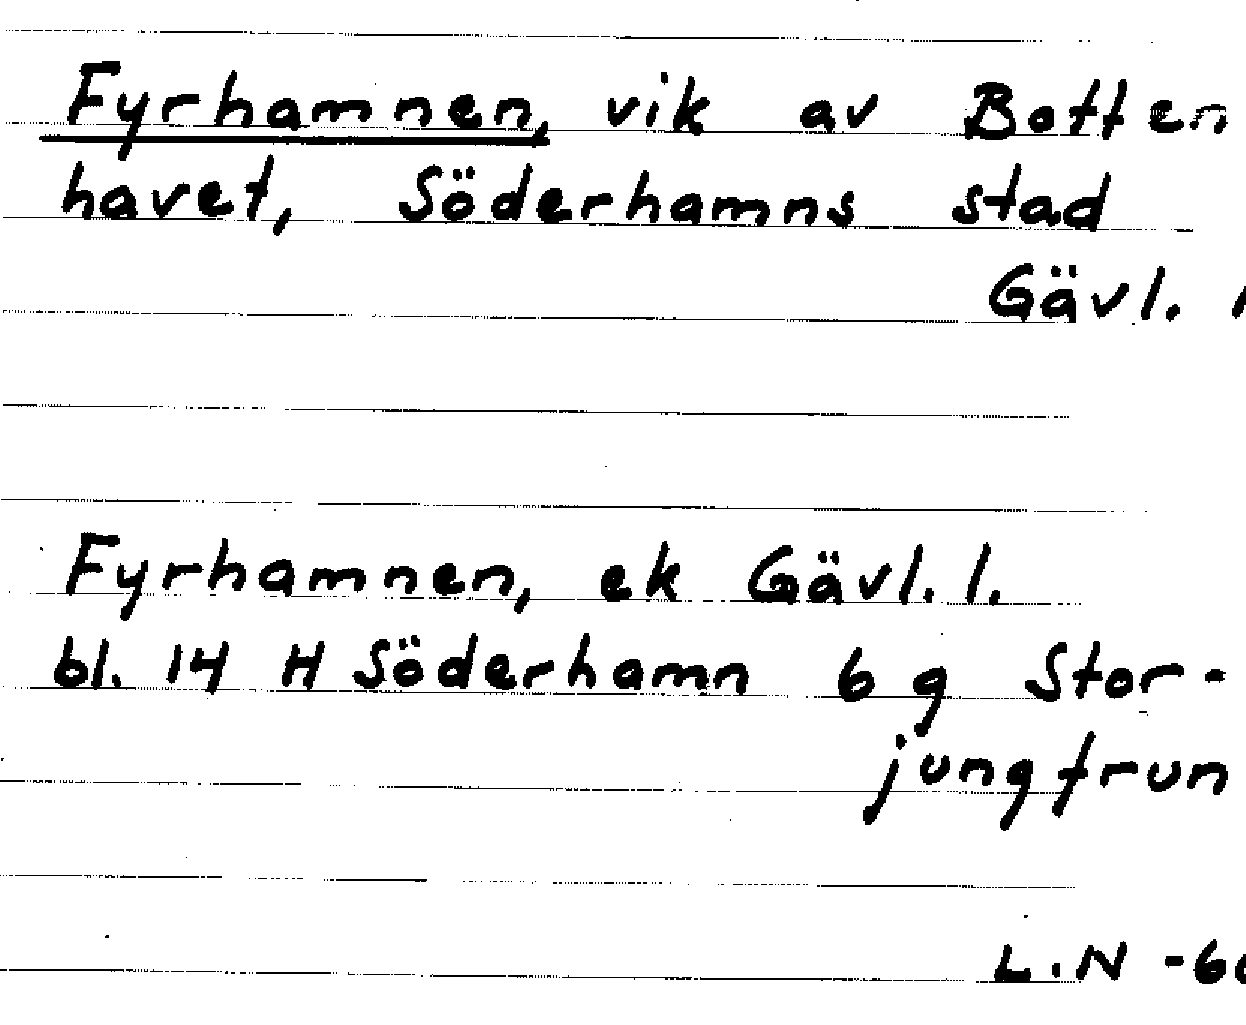 Fyrhamnen, vik av Botten
havet, Söderhamns stad
Gävl.
Fyrhamnen, ek Gävl. l.
bl. 14 H Söderhamn 6 g Stor-
jungfrun
L.N